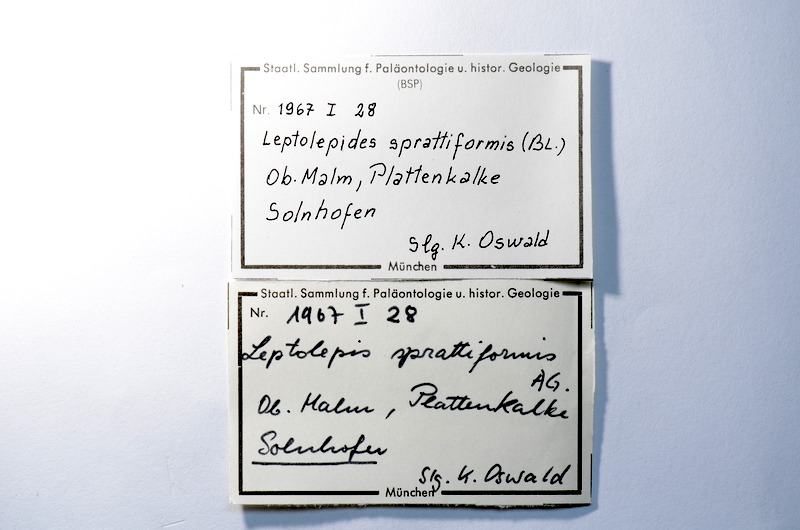 Staatl. Sammlung f. Paläontologie u. histor. Geologie
(BSP)
Nr. 1967 I 28
Leptolepides sprattiformis (BL.)
Ob. Malm, Plattenkalke
Solnhofen
Slg. K. Oswald
München
Staatl. Sammlung f. Paläontologie u. histor. Geologie
Nr. 1967 I 28
Leptolepis sprattiformis
AG.
Ob. Malm, Plattenkalke
Solnhofen
Slg. K. Oswald
München